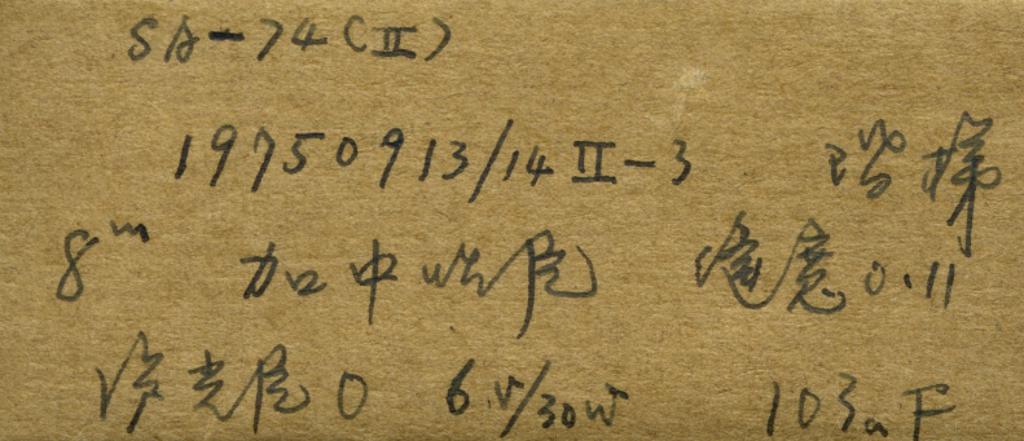 SA-74(II)
19750913/14 II-3 阶梯
8m 加中 0.11
光 0 6V/30W 103aF